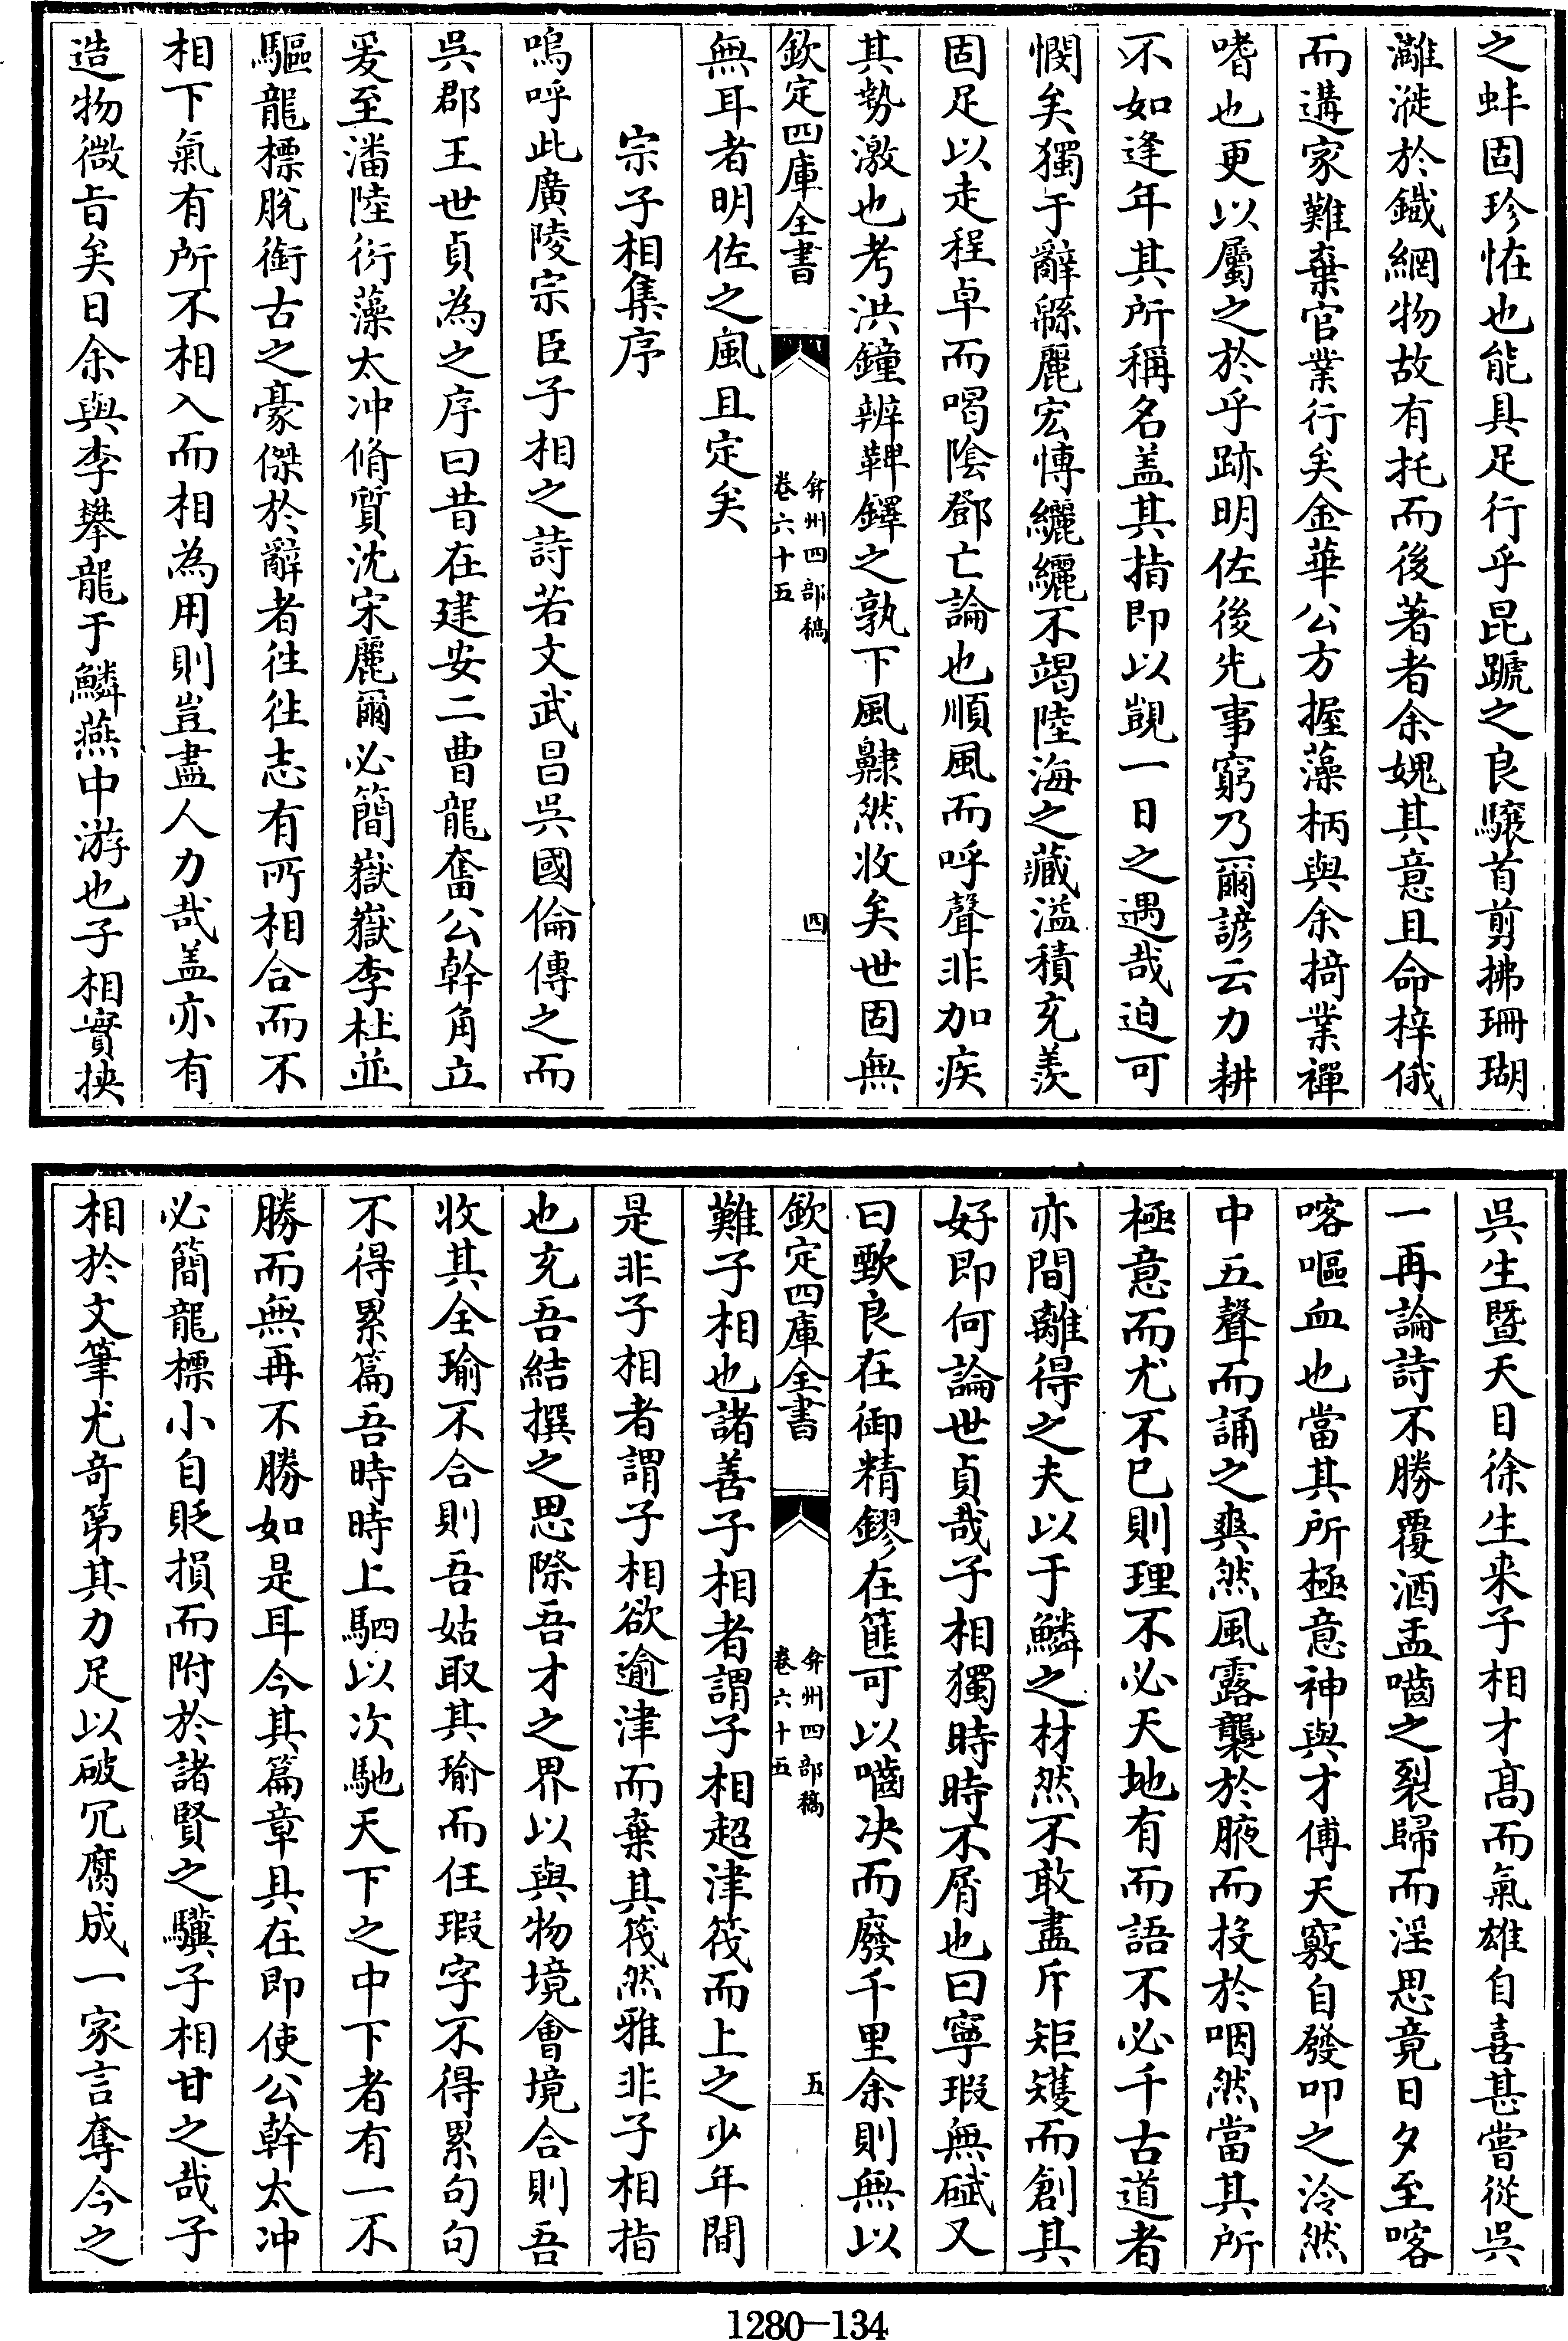 之蚌固珍恠也能具足行乎昆蹏之良驤首剪拂珊瑚
灕漇於鐵網物故有托而後著者余媿其意且命梓俄
而遘家難棄官業行矣金華公方握藻柄與余掎業禪
嗜也更以屬之於乎跡明佐後先事窮乃爾諺云力耕
不如逢年其所稱名盖其指即以覬一日之遇哉迫可
憫矣獨于辭緜麗宏博纚纚不竭陸海之藏溢積充羨
固足以走程卓而喝陰鄧亡論也順風而呼聲非加疾
其勢激也考洪鐘辨鞞鐸之孰下風肅然收矣世固無
欽定四庫全書
弇州四部稿
卷六十五
四
無耳者明佐之風且定矣
宗子相集序
嗚呼此廣陵宗臣子相之詩若文武昌吳國倫傳之而
吳郡王世貞為之序曰昔在建安二曹龍奮公幹角立
爰至潘陸衍藻太冲脩質沈宋麗爾必簡嶽嶽李杜並
驅龍標脫銜古之豪傑於辭者徃徃志有所相合而不
相下氣有所不相入而相為用則豈盡人力哉盖亦有
造物微㫖矣日余與李攀龍于鱗燕中游也子相實挾
吳生暨天目徐生来子相才髙而氣雄自喜甚嘗從吳
一再論詩不勝覆酒盂嚙之裂歸而淫思竟日夕至喀
喀嘔血也當其所極意神與才傅天竅自發叩之泠然
中五聲而誦之爽然風露襲於腋而投於咽然當其所
極意而尤不已則理不必天地有而語不必千古道者
亦間離得之夫以于鱗之材然不敢盡斥矩矱而創其
好即何論世貞哉子相獨時時不屑也曰寧瑕無碔又
曰甄良在御精鏐在篚可以嚙决而廢千里余則無以
欽定四庫全書
弇州四部稿
卷六十五
五
難子相也諸善子相者謂子相超津筏而上之少年間
是非子相者謂子相欲逾津而棄其筏然雅非子相指
也充吾結撰之思際吾才之界以與物境㑹境合則吾
收其全瑜不合則吾姑取其瑜而任瑕字不得累句句
不得累篇吾時時上駟以次馳天下之中下者有一不
勝而無再不勝如是耳今其篇章具在即使公幹太冲
必簡龍標小自貶損而附於諸賢之驥子相甘之哉子
相於文筆尤竒第其力足以破冗腐成一家言奪今之
1280—134